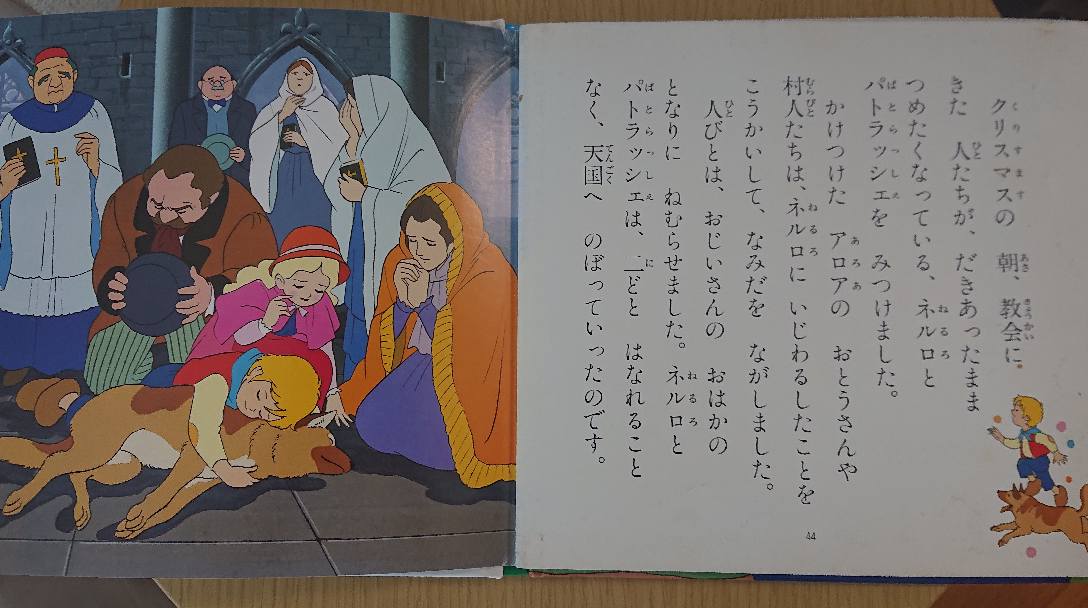 クリスマスの　朝、教会に
きた　人たちが、だきあったまま
つめたくなっている、ネルロと
パトラッシェを　みつけました。
かけつけた　アロアの　おとうさんや
村人たちは、ネルロに　いじわるしたことを
こうかいして、なみだを　ながしました。
人びとは、おじいさんの　おはかの
となりに　ねむらせました。ネルロと
パトラッシェは、二どと　はなれること
なく、天国へ　のぼっていったのです。
44